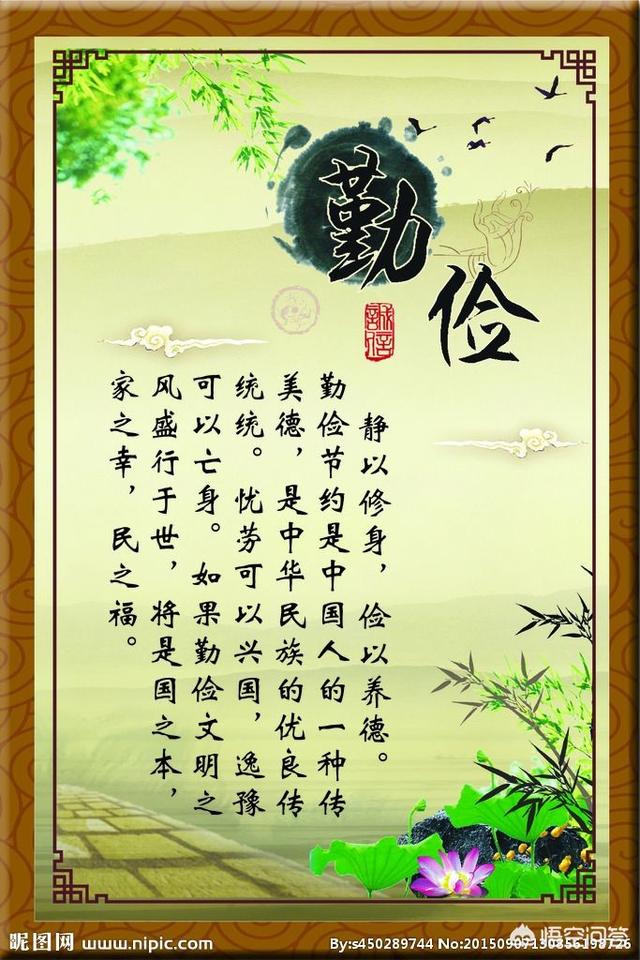 勤
俭
誠信
静以修身，俭以养德。
勤俭节约是中国人的一种传
美德，是中华民族的优良传
统统。忧劳可以兴国，逸豫
可以亡身。如果勤俭文明之
风盛行于世，将是国之本，
家之幸，民之福。
昵图网 www.nipic.com
By:s450289744
悟空问答